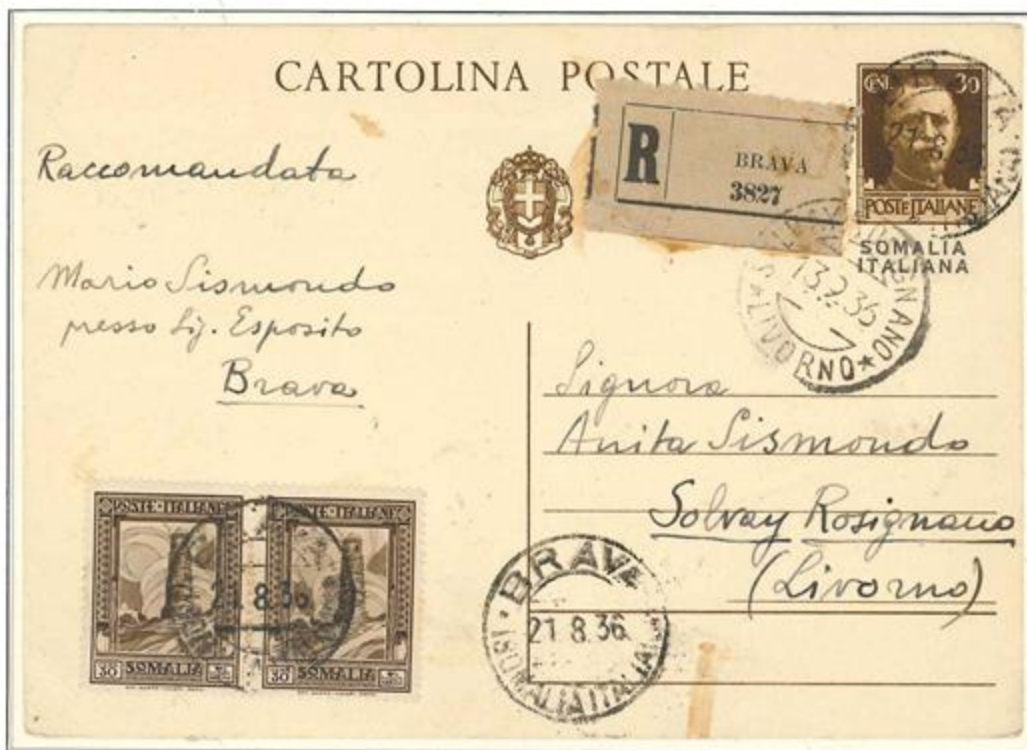 CARTOLINA POSTALE
CENT. 30
POSTE ITALIANE
SOMALIA
ITALIANA
R
BRAVA
3827
Raccomandata
Mario Sismondo
presso Sig. Esposito
Brava
ROSIGNANO
LIVORNO
Signora
Anita Sismondo
Solvay Rosignano
(Livorno)
POSTE·ITALIANE
30 SOMALIA
POSTE·ITALIANE
30 SOMALIA
21 8.36
BRAVA
21 8.36
(SOMALIA ITALIANA)